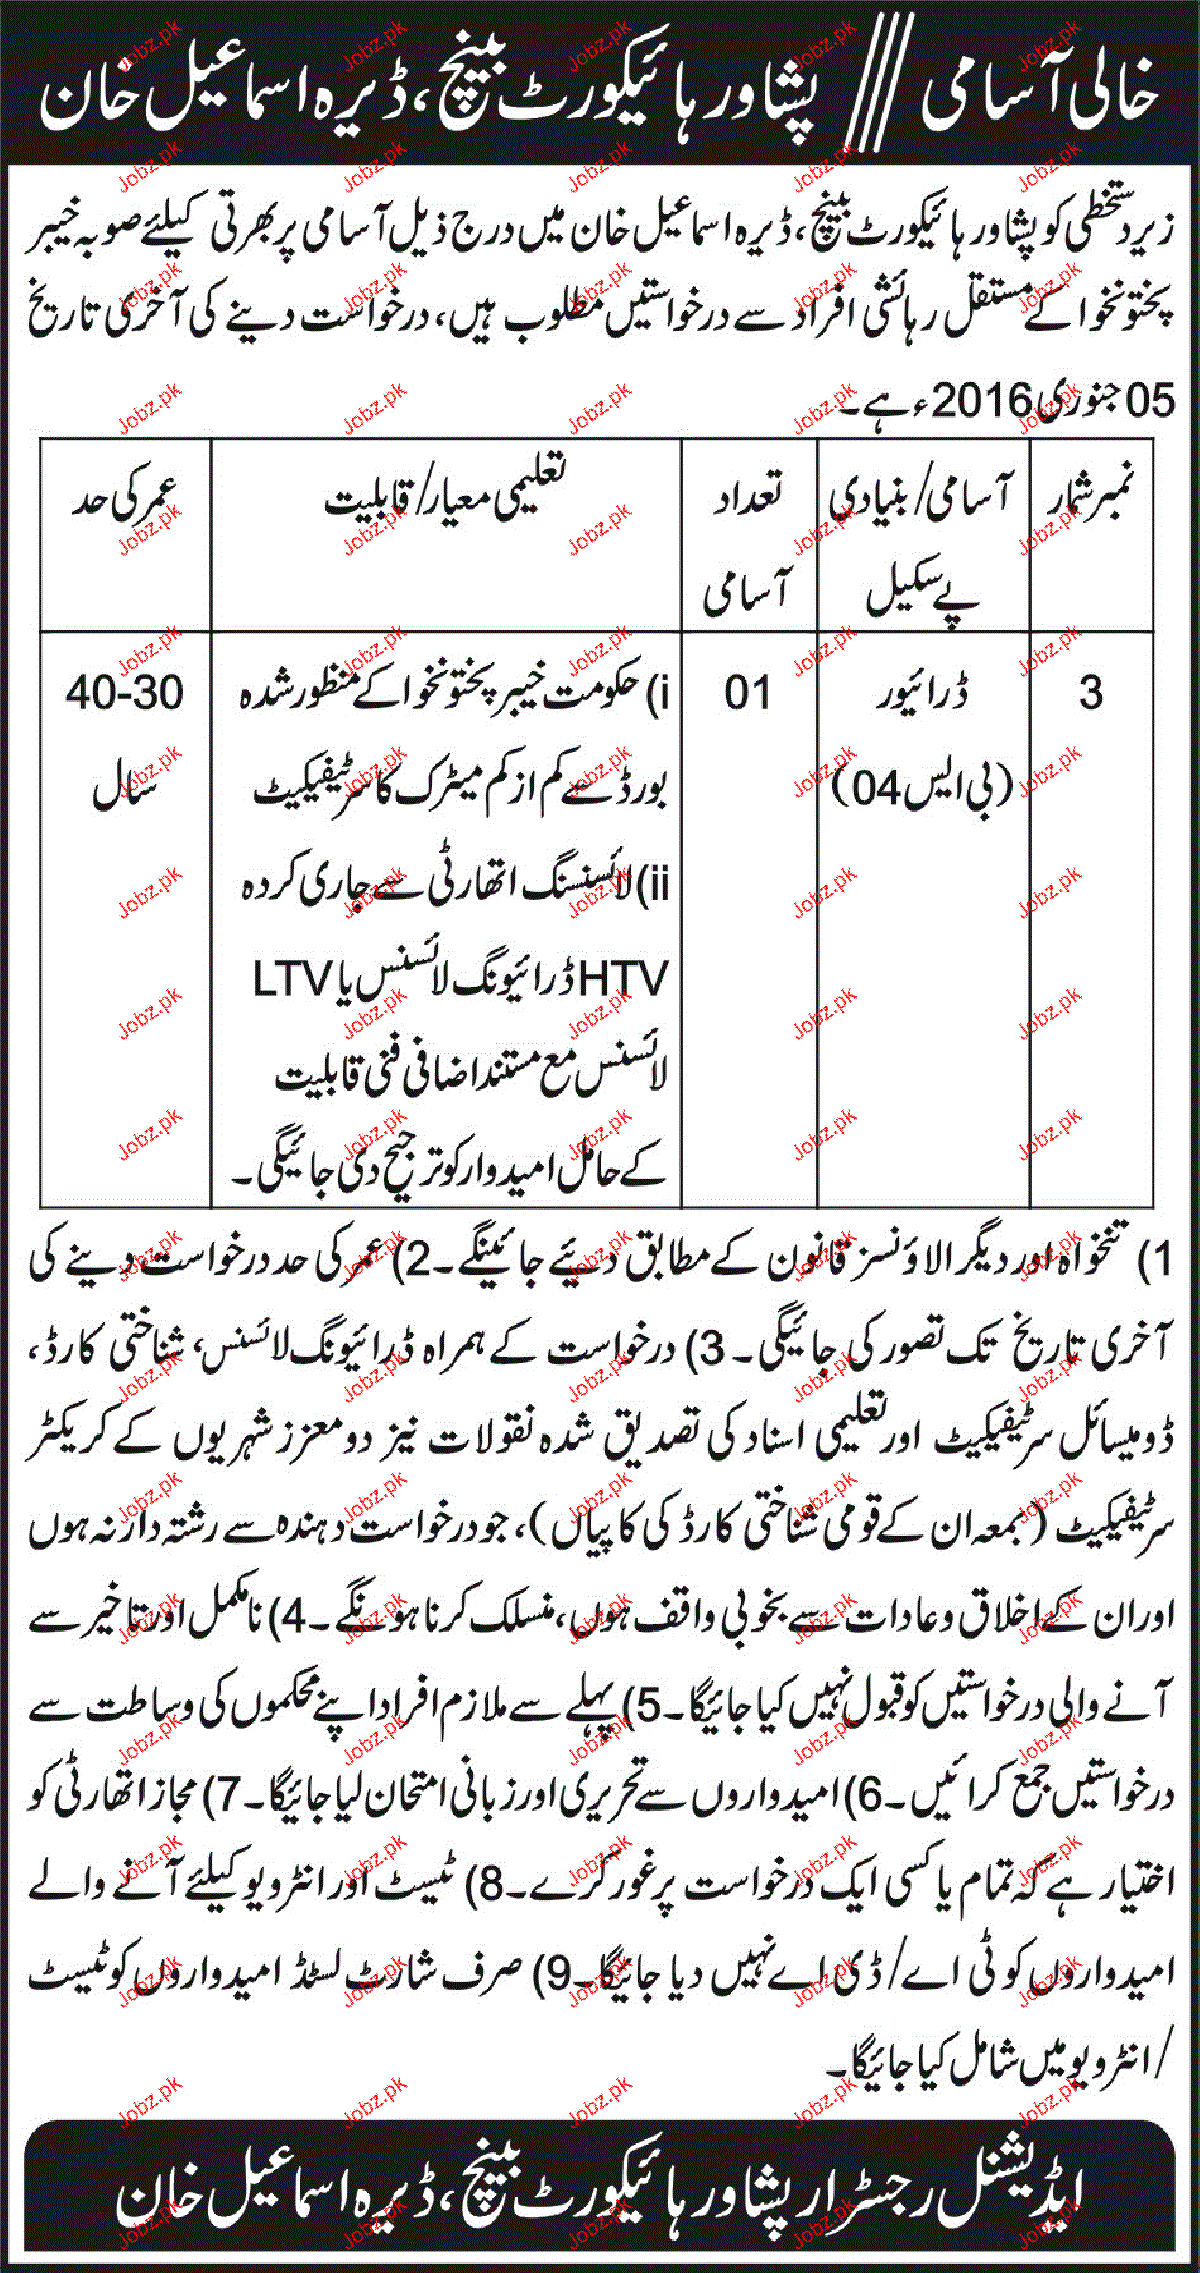 خالی آسامی /// پشاور ہائیکورٹ بینچ، ڈیرہ اسماعیل خان
زیر دستخطی کو پشاور ہائیکورٹ بینچ، ڈیرہ اسماعیل خان میں درج ذیل آسامی پر بھرتی کیلئے صوبہ خیبر
پختونخوا کے مستقل رہائشی افراد سے درخواستیں مطلوب ہیں، درخواست دینے کی آخری تاریخ
05 جنوری 2016ء ہے۔
نمبر شمار
آسامی/ بنیادی
پے سکیل
تعداد
آسامی
تعلیمی معیار/ قابلیت
عمر کی حد
3
ڈرائیور
(بی ایس 04)
01
i) حکومت خیبر پختونخوا کے منظور شدہ
بورڈ سے کم از کم میٹرک کا سرٹیفیکیٹ
ii) لائسنسنگ اتھارٹی سے جاری کردہ
HTV ڈرائیونگ لائسنس یا LTV
لائسنس مع مستند اضافی فنی قابلیت
کے حامل امیدوار کو ترجیح دی جائیگی۔
40-30
سال
1) تنخواہ اور دیگر الاؤنسز قانون کے مطابق دیئے جائینگے۔ 2) عمر کی حد درخواست دینے کی
آخری تاریخ تک تصور کی جائیگی۔ 3) درخواست کے ہمراہ ڈرائیونگ لائسنس، شناختی کارڈ،
ڈومیسائل سرٹیفیکیٹ اور تعلیمی اسناد کی تصدیق شدہ نقولات نیز دو معزز شہریوں کے کریکٹر
سرٹیفیکیٹ (بمعہ ان کے قومی شناختی کارڈ کی کاپیاں)، جو درخواست دہندہ سے رشتہ دار نہ ہوں
اور ان کے اخلاق و عادات سے بخوبی واقف ہوں، منسلک کرنا ہونگے۔ 4) نامکمل اور تاخیر سے
آنے والی درخواستیں کو قبول نہیں کیا جائیگا۔ 5) پہلے سے ملازم افراد اپنے محکموں کی وساطت سے
درخواستیں جمع کرائیں۔ 6) امیدواروں سے تحریری اور زبانی امتحان لیا جائیگا۔ 7) مجاز اتھارٹی کو
اختیار ہے کہ تمام یا کسی ایک درخواست پر غور کرے۔ 8) ٹیسٹ اور انٹرویو کیلئے آنے والے
امیدواروں کو ٹی اے/ ڈی اے نہیں دیا جائیگا۔ 9) صرف شارٹ لسٹڈ امیدواروں کو ٹیسٹ
/ انٹرویو میں شامل کیا جائیگا۔
ایڈیشنل رجسٹرار پشاور ہائیکورٹ بینچ، ڈیرہ اسماعیل خان
Jobz.pk